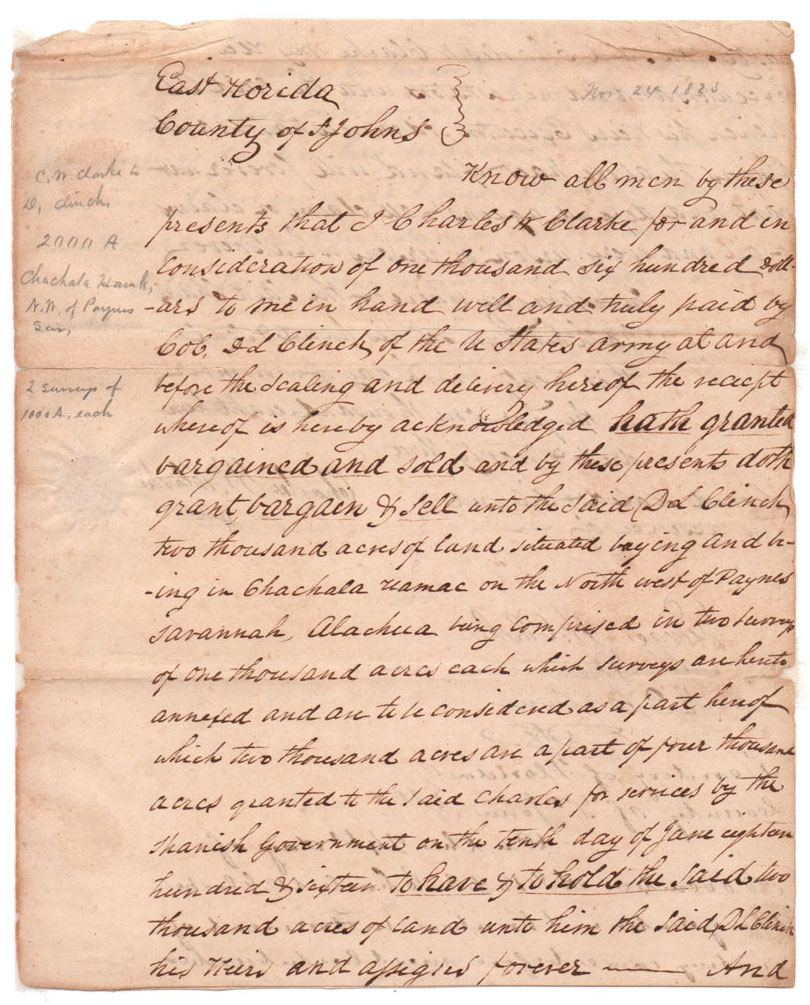 East Florida
County of St Johns
Nov 24 1823
C. W. Clarke to
D, Clinch
2000 A
Chachala Hamk,
N.W. of Paynes
Sav,
2 surveys of
1000 A, each
Know all men by these
presents that I Charles W Clarke for and in
consideration of one thousand six hundred doll-
-ars to me in hand well and truly paid by
Col. D L Clinch of the U States army at and
before the sealing and delivery hereof the reciept
whereof is hereby acknowledged hath granted
bargained and sold and by these presents doth
grant bargain & sell unto the said D L Clinch
two thousand acres of land situated laying and be-
-ing in Chachala Hamac on the North west of Paynes
Savannah, Alachua being comprised in two surveys
of one thousand acres each which surveys are hereto
annexed and are to be considered as a part hereof
which two thousand acres are a part of four thousand
acres granted to the said Charles for services by the
Spanish Government on the tenth day of June eighteen
hundred & sixteen to have & to hold the said two
thousand acres of land unto him the said D L Clinch
his Heirs and assigns forever — And